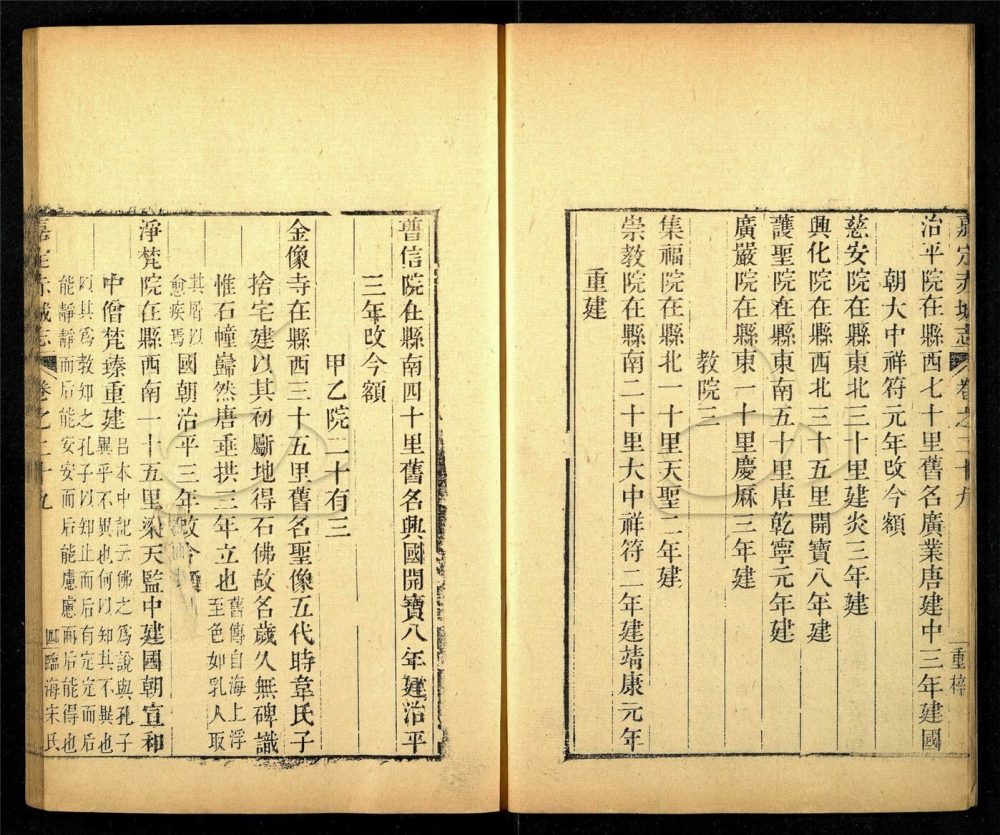 嘉定赤城志 卷之二十九 重梓
治平院在縣西七十里舊名廣業唐建中三年建國
朝大中祥符元年改今額
慈安院在縣東北三十里建炎三年建
興化院在縣西北三十五里開寶八年建
護聖院在縣東南五十里唐乾寧元年建
廣嚴院在縣東一十里慶厤三年建
教院三
集福院在縣北一十里天聖二年建
崇教院在縣南二十里大中祥符二年建靖康元年
重建
普信院在縣南四十里舊名興國開寶八年建治平
三年改今額
甲乙院二十有三
金像寺在縣西三十五里舊名聖像五代時韋氏子
捨宅建以其初斸地得石佛故名歲久無碑識
惟石幢巋然唐垂拱三年立也舊傳自海上浮
至色如乳人取
其屑以
愈疾焉國朝治平三年改今額
淨梵院在縣西南一十五里梁天監中建國朝宣和
中僧梵臻重建呂本中記云佛之爲說與孔子
異乎不異也何以知其不異也
以其爲教知之孔子以知止而后有定定而后
能靜靜而后能安安而后能慮慮而后能得也
嘉定赤城志 卷之二十九 臨海宋氏